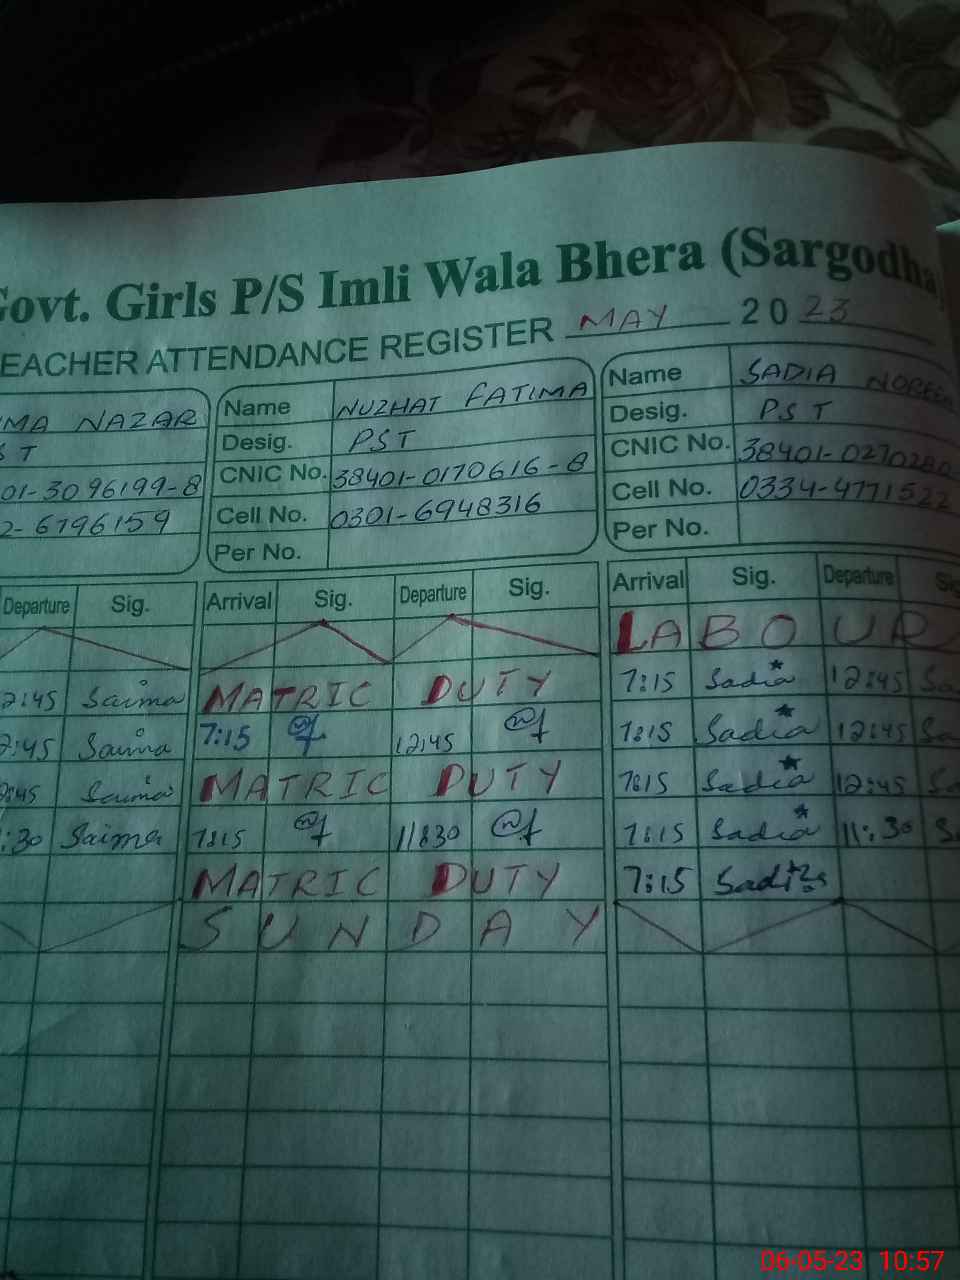 Govt. Girls P/S Imli Wala Bhera (Sargodha)
TEACHER ATTENDANCE REGISTER MAY 2023
IMA NAZAR Name NUZHAT FATIMA Name SADIA NOREEN
ST Desig. PST Desig. PST
01-3096199-8 CNIC No. 38401-0170616-8 CNIC No. 38401-0270280
2-6796159 Cell No. 0301-6948316 Cell No. 0334-4771522
Per No. Per No.
Departure Sig. Arrival Sig. Departure Sig. Arrival Sig. Departure Sig
LABOUR
12:45 Saima MATRIC DUTY 7:15 Sadia 12:45 Sa
2:45 Saima 7:15 12:45 7:15 Sadia 12:45 Sa
2:45 Saima MATRIC DUTY 7:15 Sadia 12:45 Sa
:30 Saima 7:15 11:30 7:15 Sadia 11:30 S
MATRIC DUTY 7:15 Sadia
SUNDAY
06-05-23 10:57